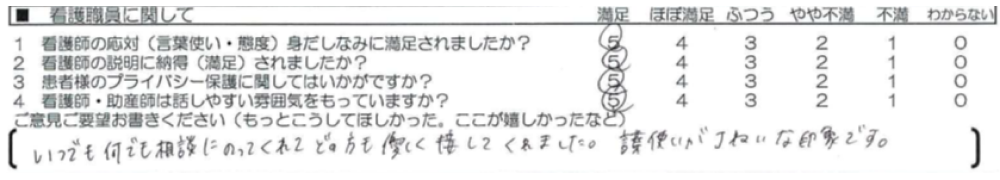 ■ 看護職員に関して 満足 ほぼ満足 ふつう やや不満 不満 わからない
1 看護師の応対（言葉使い・態度）身だしなみに満足されましたか？ 5 4 3 2 1 0
2 看護師の説明に納得（満足）されましたか？ 5 4 3 2 1 0
3 患者様のプライバシー保護に関してはいかがですか？ 5 4 3 2 1 0
4 看護師・助産師は話しやすい雰囲気をもっていますか？ 5 4 3 2 1 0
ご意見ご要望お書きください（もっとこうしてほしかった。ここが嬉しかったなど）
いつでも何でも相談にのってくれて どの方も優しく 接してくれました。 言葉使いがていねいな印象です。